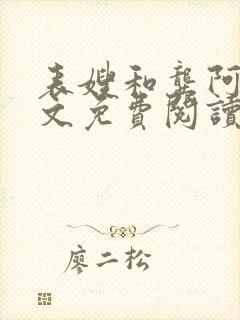 表嫂和龚阿
文免費閱讀
廖二松